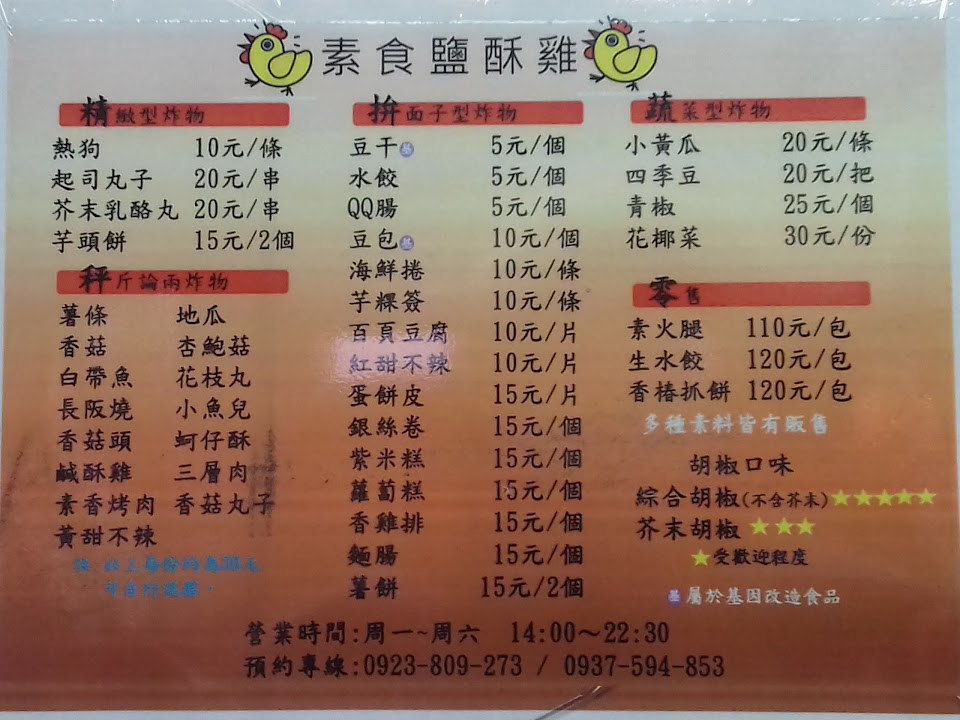 素食鹽酥雞
精緻型炸物
熱狗 10元/條
起司丸子 20元/串
芥末乳酪丸 20元/串
芋頭餅 15元/2個
秤斤論兩炸物
薯條 地瓜
香菇 杏鮑菇
白帶魚 花枝丸
長阪燒 小魚兒
香菇頭 蚵仔酥
鹹酥雞 三層肉
素香烤肉 香菇丸子
黃甜不辣
可自行選擇。
拚面子型炸物
豆干基 5元/個
水餃 5元/個
QQ腸 5元/個
豆包基 10元/個
海鮮捲 10元/條
芋粿簽 10元/條
百頁豆腐 10元/片
紅甜不辣 10元/片
蛋餅皮 15元/片
銀絲卷 15元/個
紫米糕 15元/個
蘿蔔糕 15元/個
香雞排 15元/個
麵腸 15元/個
薯餅 15元/2個
蔬菜型炸物
小黃瓜 20元/條
四季豆 20元/把
青椒 25元/個
花椰菜 30元/份
零售
素火腿 110元/包
生水餃 120元/包
香椿抓餅 120元/包
多種素料皆有販售
胡椒口味
綜合胡椒(不含芥末)★★★★★
芥末胡椒 ★★★
★受歡迎程度
基屬於基因改造食品
營業時間:周一~周六 14:00~22:30
預約專線:0923-809-273 / 0937-594-853